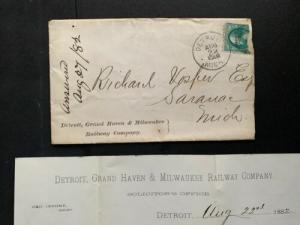 answered
Aug 27/82.
DETROIT
AUG
22
MICH.
Richard Vosper Esq
Saranac
Mich
Detroit, Grand Haven & Milwaukee
Railway Company.
DETROIT, GRAND HAVEN & MILWAUKEE RAILWAY COMPANY.
SOLICITOR'S OFFICE.
DETROIT, Aug 22nd 1882